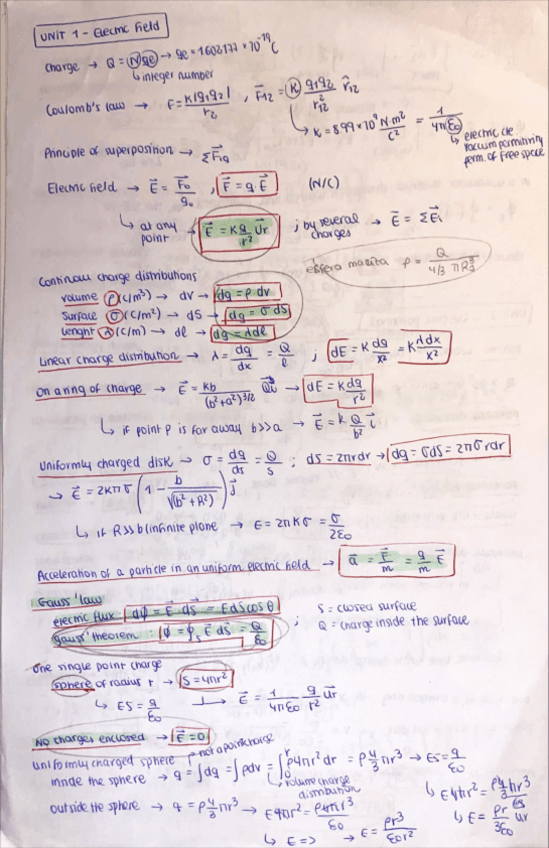 UNIT 1 - Electric Field
charge → Q = N qe → qe = 1.602177 × 10⁻¹⁹ C
↳ integer number
Coulomb's law → F = K|q₁q₂| / r₂ , F⃗₁₂ = K q₁q₂ / r²₁₂ r⃗₁₂
↳ K = 8.99 × 10⁹ N·m² / C² = 1 / 4πε₀
↳ electric de vacuum permitivity perm. of free space
Principle of superposition → ΣF⃗iq
Electric field → E⃗ = F⃗₀ / q₀ , F⃗ = q·E⃗ (N/C)
↳ at any point → E⃗ = K q / r² u⃗r ; by several charges → E⃗ = ΣE⃗i
esfera maciza ρ = Q / 4/3 πR³
Continous charge distributions
volume ρ (C/m³) → dv → dq = ρ·dv
surface σ (C/m²) → dS → dq = σ dS
lenght λ (C/m) → dl → dq = λdl
Linear charge distribution → λ = dq / dx = Q / l ; dE = K dq / x² = K λdx / x²
On a ring of charge → E⃗ = kb / (b²+a²)^3/2 Q i⃗ → dE = K dq / r²
↳ if point p is far away b>>a → E⃗ = K Q / b² i⃗
Uniformly charged disk → σ = dq / ds = Q / S ; dS = 2πrdr → dq = σdS = 2πσrdr
→ E⃗ = 2Kπσ (1 - b / √(b²+R²)) j⃗
↳ if R>>b (infinite plane → E = 2πKσ = σ / 2ε₀
Acceleration of a particle in an uniform electric field → a⃗ = F⃗ / m = q / m E⃗
Gauss' law
electric flux: dϕ = E⃗·dS⃗ = E dS cos θ ; S = closed surface
gauss' theorem: ϕ = ∮s E⃗ dS⃗ = Q / ε₀ Q = charge inside the surface
One single point charge
sphere of radius r → S = 4πr²
↳ ES = q / ε₀ → E⃗ = 1 / 4πε₀ q / r² u⃗r
No charges enclosed → E⃗ = 0
uniformly charged sphere not a point charge
inside the sphere → q = ∫dq = ∫ρdv = ∫₀ʳ ρ4πr² dr = ρ 4/3 πr³ → ES = q / ε₀
↳ volume charge distribution
↳ E4πr² = ρ 4/3 πr³ / ε₀
outside the sphere → q = ρ 4/3 πr³ → E4πr² = ρ4πr³ / ε₀
↳ E = ρr / 3ε₀ ur
↳ E => → E = ρr³ / ε₀r²